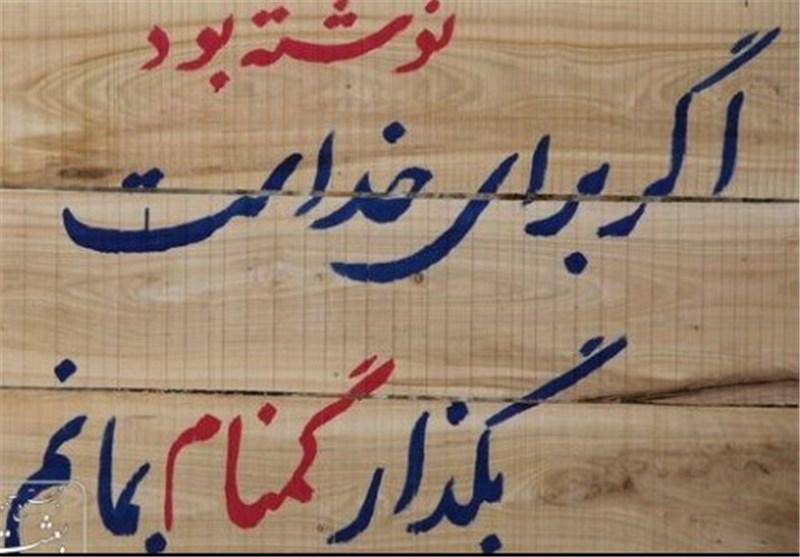 نوشته بود
اگر برای خداست
بگذار گمنام بمانم
بعثت